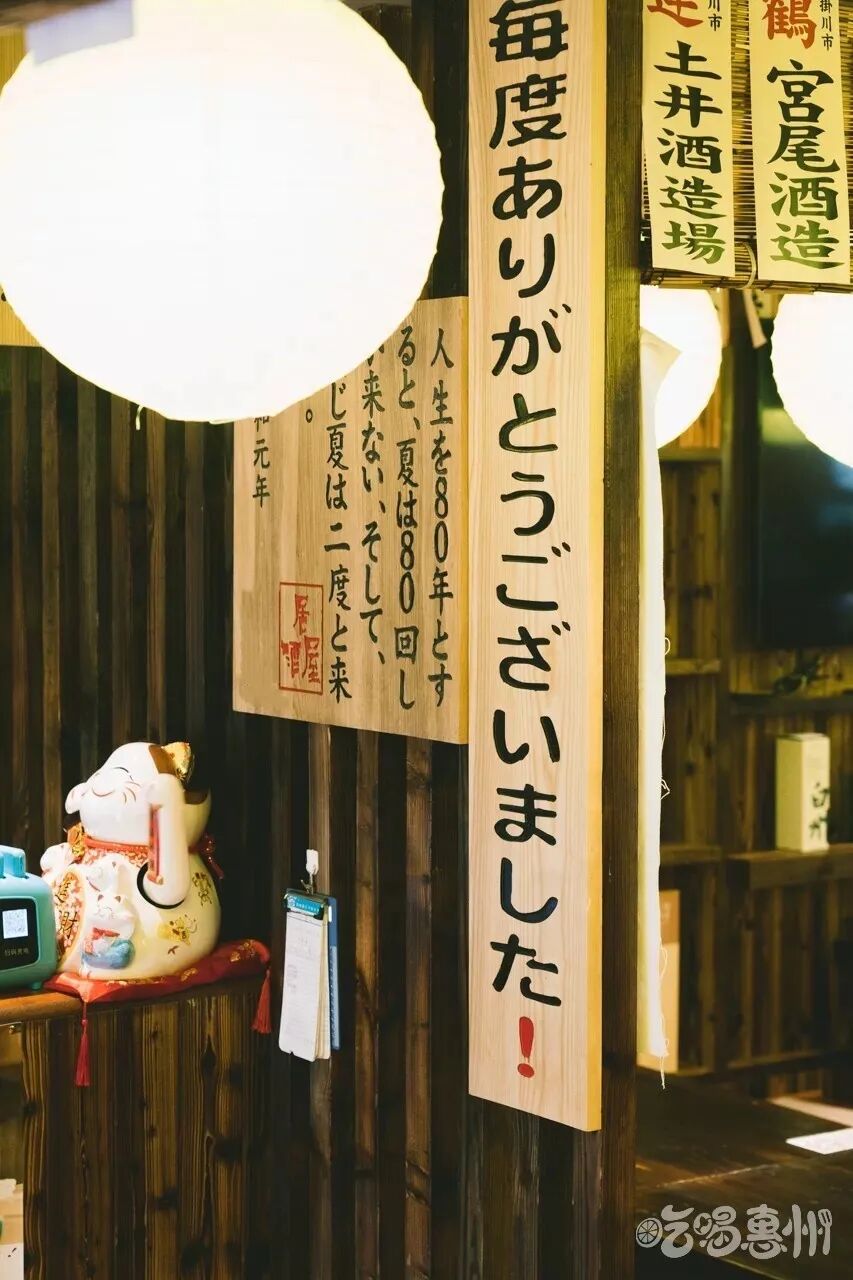 掛川市
宮尾酒造
掛川市
土井酒造場
毎度ありがとうございました!
人生を80年とす
ると、夏は80回し
来ない、そして、
じ夏は二度と来
。
元年
居酒屋
財
吃喝惠州